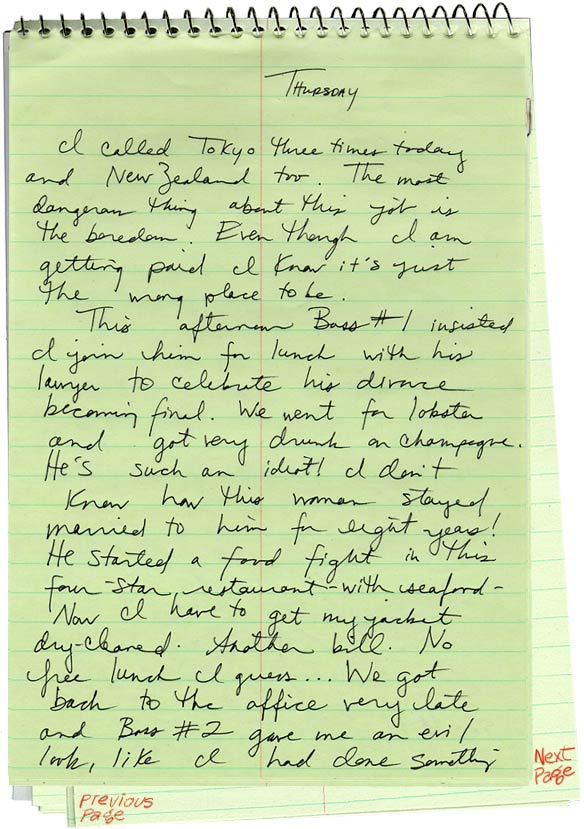 THURSDAY
I called Tokyo three times today
and New Zealand too. The most
dangerous thing about this job is
the boredom. Even though I am
getting paid I know it's just
the wrong place to be.
This afternoon Boss #1 insisted
I join him for lunch with his
lawyer to celebrate his divorce
becoming final. We went for lobster
and got very drunk on champagne.
He's such an idiot! I don't
know how this woman stayed
married to him for eight years!
He started a food fight in this
four-star restaurant - with seafood -
Now I have to get my jacket
dry-cleaned. Another bill. No
free lunch I guess... We got
back to the office very late
and Boss #2 gave me an evil
look, like I had done something
Next
Page
Previous
Page